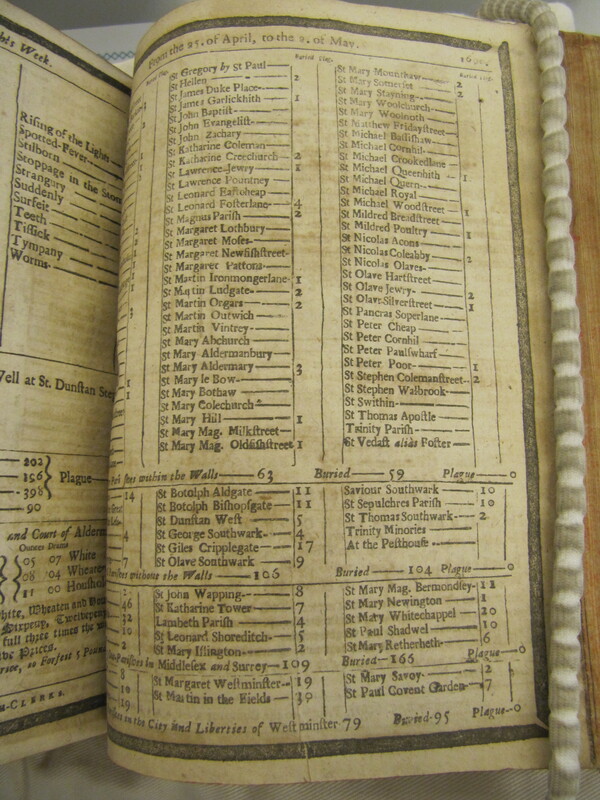 this Week.
Rising of the Lights
Spotted-Fever
Stilborn
Stoppage in the Stom
Strangury
Suddenly
Surfeit
Teeth
Tissick
Tympany
Worms
Well at St. Dunstan Ste
202
156 Plague
398
90
and Court of Alderm
Ounces Drams
05 07 White
08 04 Wheaten
11 00 Houshol
hite, Wheaten and
full three times the w
M-CLERKS.
From the 25. of April, to the 2. of May.
Buried Plag.
St Gregory by St Paul
St Hellen 2
St James Duke Place
St James Garlickhith 1
St John Baptist
St John Evangelist
St John Zachary
St Katharine Coleman
St Katharine Creechurch 2
St Lawrence Jewry 1
St Lawrence Pountney
St Leonard Eastcheap
St Leonard Fosterlane 4
St Magnus Parish 2
St Margaret Lothbury
St Margaret Moses
St Margaret Newfishstreet
St Margaret Pattons
St Martin Ironmongerlane 1
St Martin Ludgate 2
St Martin Orgars 2
St Martin Outwich
St Martin Vintrey
St Mary Abchurch
St Mary Aldermanbury
St Mary Aldermary 3
St Mary le Bow
St Mary Bothaw
St Mary Colechurch
St Mary Hill 1
St Mary Mag. Milkstreet
St Mary Mag. Oldfishstreet 1
Buried Plag.
St Mary Mounthaw
St Mary Somerset 2
St Mary Stayning 2
St Mary Woolchurch
St Mary Woolnoth
St Matthew Fridaystreet
St Michael Bassishaw
St Michael Cornhil
St Michael Crookedlane
St Michael Queenhith 1
St Michael Quern
St Michael Royal
St Michael Woodstreet 1
St Mildred Breadstreet
St Mildred Poultry 1
St Nicolas Acons
St Nicolas Coleabby 2
St Nicolas Olaves
St Olave Hartstreet
St Olave Jewry 2
St Olave Silverstreet 1
St Pancras Soperlane
St Peter Cheap
St Peter Cornhil
St Peter Paulswharf
St Peter Poor 1
St Stephen Colemanstreet 2
St Stephen Walbrook
St Swithin
St Thomas Apostle
Trinity Parish
St Vedast alias Foster
within the Walls 63 Buried 59 Plague 0
14 St Botolph Aldgate 11
St Botolph Bishopsgate 11
St Dunstan West 5
4 St George Southwark 4
St Giles Cripplegate 17
7 St Olave Southwark 9
Saviour Southwark 10
St Sepulchres Parish 10
St Thomas Southwark 2
Trinity Minories
At the Pesthouse
without the Walls 106 Buried 104 Plague 0
St John Wapping 8
46 St Katharine Tower 7
32 Lambeth Parish 4
10 St Leonard Shoreditch 5
St Mary Islington 2
St Mary Mag. Bermondsey 11
St Mary Newington 1
St Mary Whitechappel 20
St Paul Shadwel 10
St Mary Retherheth 6
in Middlesex and Surrey 109 Buried 166 Plague 0
8 St Margaret Westminster 19
10 St Martin in the Fields 30
19
St Mary Savoy 2
St Paul Covent Garden 7
in the City and Liberties of Westminster 79 Buried 95 Plague 0